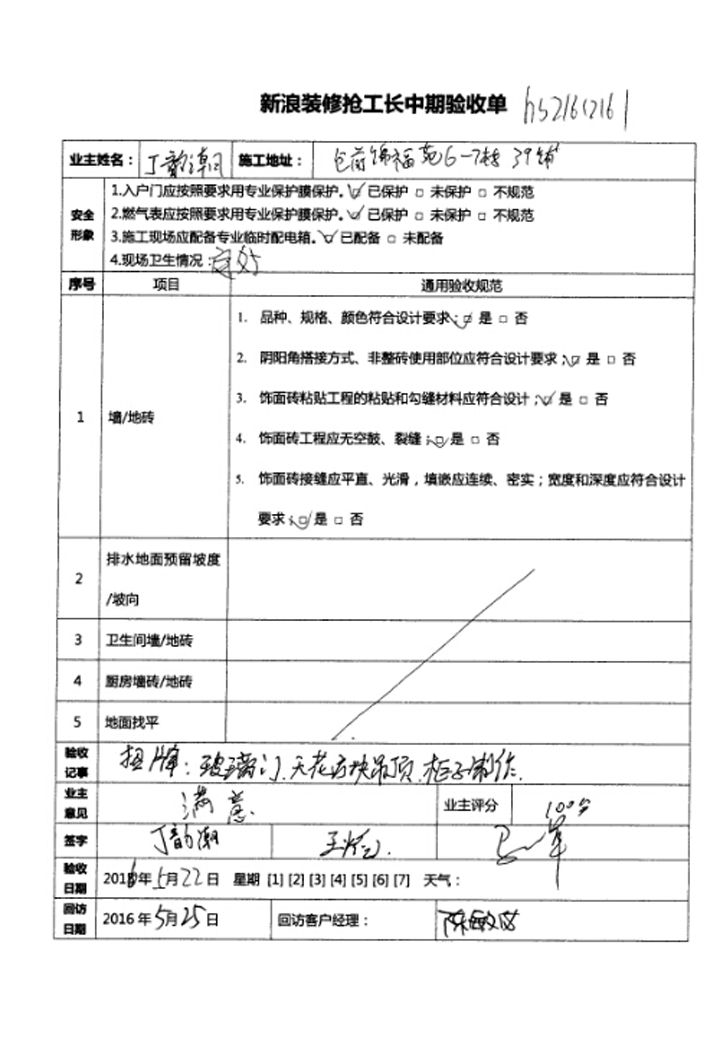 新浪装修抢工长中期验收单 hs21612161
业主姓名： 丁韵潮 施工地址： 仓前锦福苑6-7栋 39铺
安全形象 1.入户门应按照要求用专业保护膜保护。☑ 已保护 □ 未保护 □ 不规范
2.燃气表应按照要求用专业保护膜保护。☑ 已保护 □ 未保护 □ 不规范
3.施工现场应配备专业临时配电箱。☑ 已配备 □ 未配备
4.现场卫生情况：良好
序号 项目 通用验收规范
1 墙/地砖
1. 品种、规格、颜色符合设计要求；☑ 是 □ 否
2. 阴阳角搭接方式、非整砖使用部位应符合设计要求；☑ 是 □ 否
3. 饰面砖粘贴工程的粘贴和勾缝材料应符合设计；☑ 是 □ 否
4. 饰面砖工程应无空鼓、裂缝；☑ 是 □ 否
5. 饰面砖接缝应平直、光滑，填嵌应连续、密实；宽度和深度应符合设计
要求；☑ 是 □ 否
2 排水地面预留坡度
/坡向
3 卫生间墙/地砖
4 厨房墙砖/地砖
5 地面找平
验收记事 扭牌：玻璃门.天花方块吊顶.柜子制作.
业主意见 满意. 业主评分 100分
签字 丁韵潮
验收日期 2016年5月22日 星期 [1] [2] [3] [4] [5] [6] [7] 天气：
回访日期 2016年5月25日 回访客户经理： 陈敏